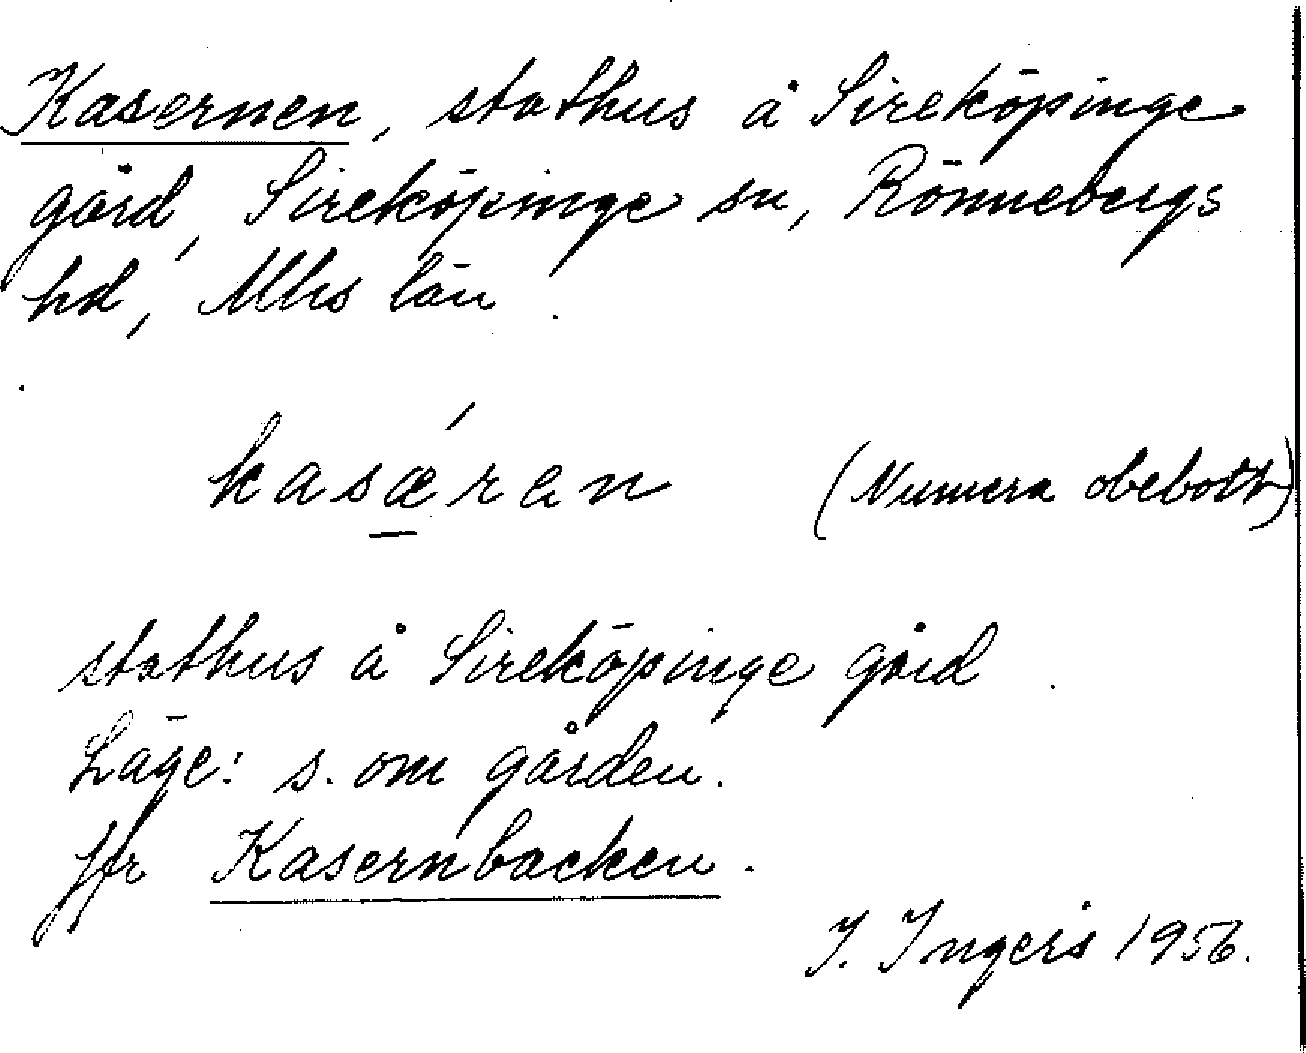 Kasernen, stathus å Sireköpinge
gård, Sireköpinge sn, Rönnebergs
hd, Mlhs län.
kasǽran (Numera obebott)
stathus å Sireköpinge gård.
Läge: s. om gården.
Jfr Kasernbacken.
I. Ingers 1956.